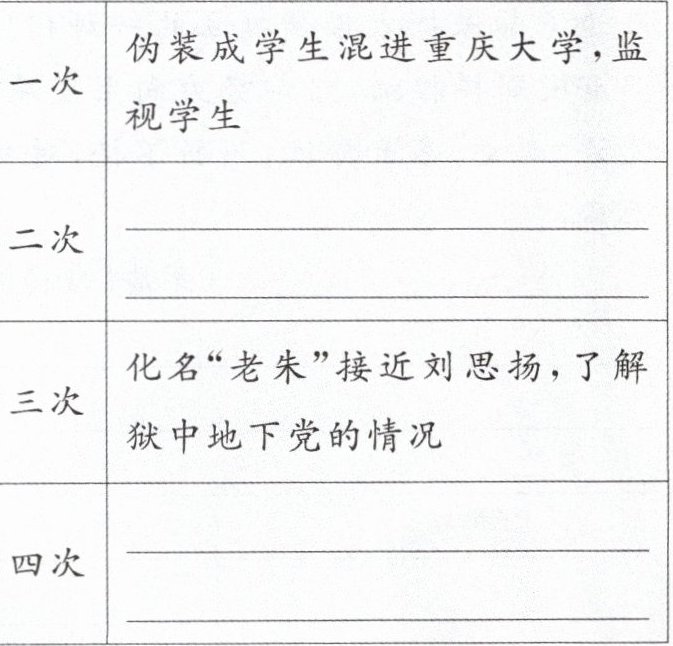 一次
伪装成学生混进重庆大学,监
视学生
二次
三次
化名“老朱”接近刘思扬,了解
狱中地下党的情况
四次